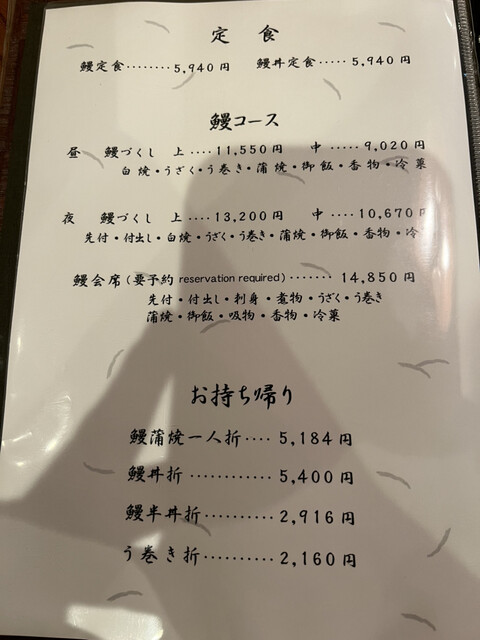 定食
鰻定食‥‥‥‥5,940円　鰻丼定食‥‥‥5,940円
鰻コース
昼　鰻づくし　上‥‥11,550円　中‥‥‥9,020円
白焼・うざく・う巻き・蒲焼・御飯・香物・冷菓
夜　鰻づくし　上‥‥13,200円　中‥‥10,670円
先付・付出し・白焼・うざく・う巻き・蒲焼・御飯・香物・冷
鰻会席（要予約 reservation required）‥‥‥‥14,850円
先付・付出し・刺身・煮物・うざく・う巻き
蒲焼・御飯・吸物・香物・冷菓
お持ち帰り
鰻蒲焼一人折‥‥5,184円
鰻丼折‥‥‥‥‥‥5,400円
鰻半丼折‥‥‥‥‥2,916円
う巻き折‥‥‥‥‥2,160円